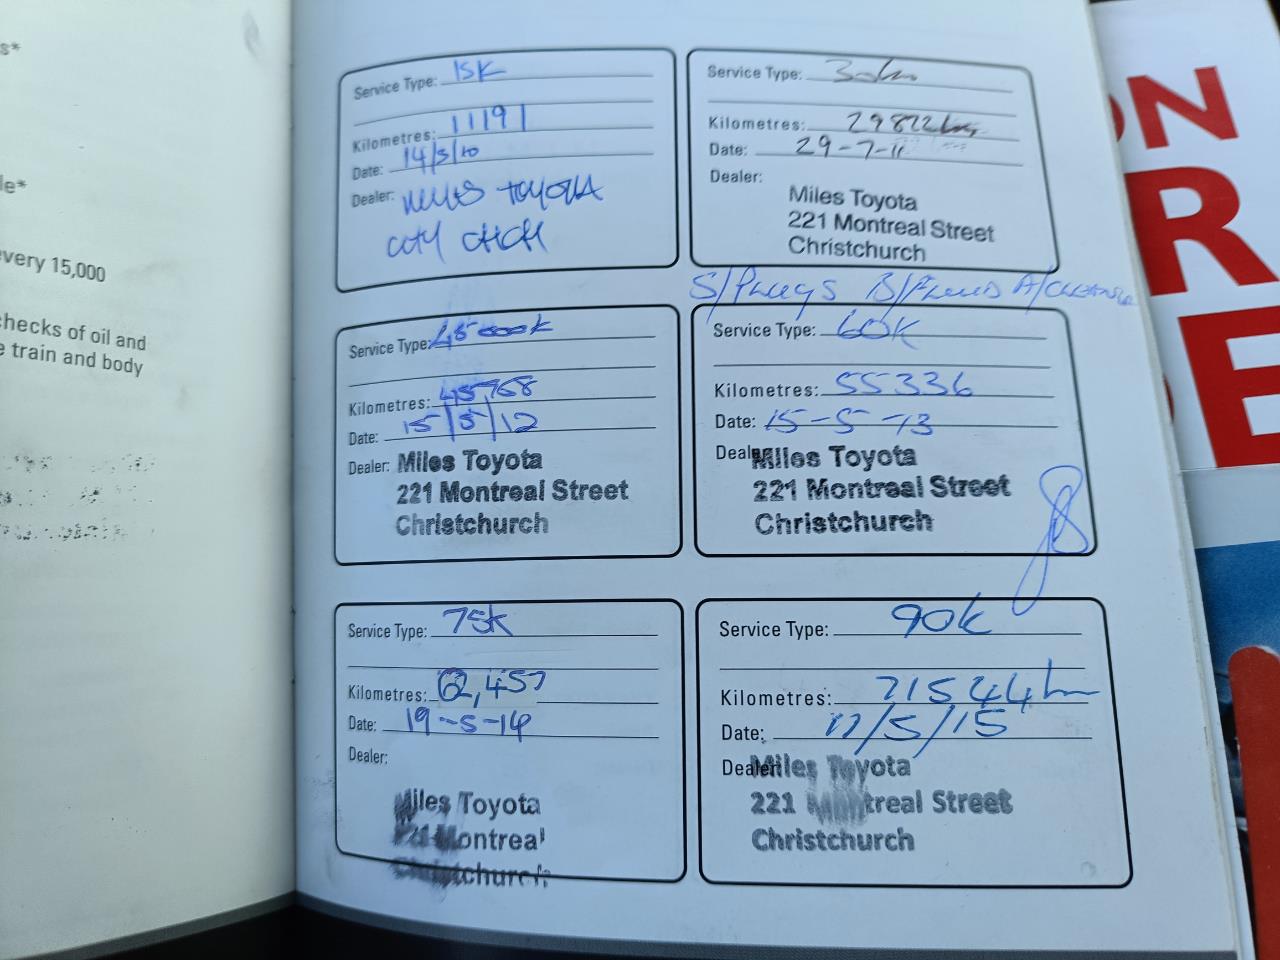 s*
le*
very 15,000
checks of oil and
e train and body
Service Type: 15K
Kilometres: 11191
Date: 14/5/10
Dealer: MILES TOYOTA
CITY CHCH
Service Type: 30km
Kilometres: 29822km
Date: 29-7-11
Dealer:
Miles Toyota
221 Montreal Street
Christchurch
S/Plugs B/Fluid A/Cleaner
Service Type: 45000k
Kilometres: 45768
Date: 15/5/12
Dealer: Miles Toyota
221 Montreal Street
Christchurch
Service Type: 60K
Kilometres: 55336
Date: 15-5-13
Dealer: Miles Toyota
221 Montreal Street
Christchurch
Service Type: 75K
Kilometres: 62,457
Date: 19-5-14
Dealer:
Miles Toyota
221 Montreal
Christchurch
Service Type: 90K
Kilometres: 71544km
Date: 11/5/15
Dealer: Miles Toyota
221 Montreal Street
Christchurch
ON
R
E